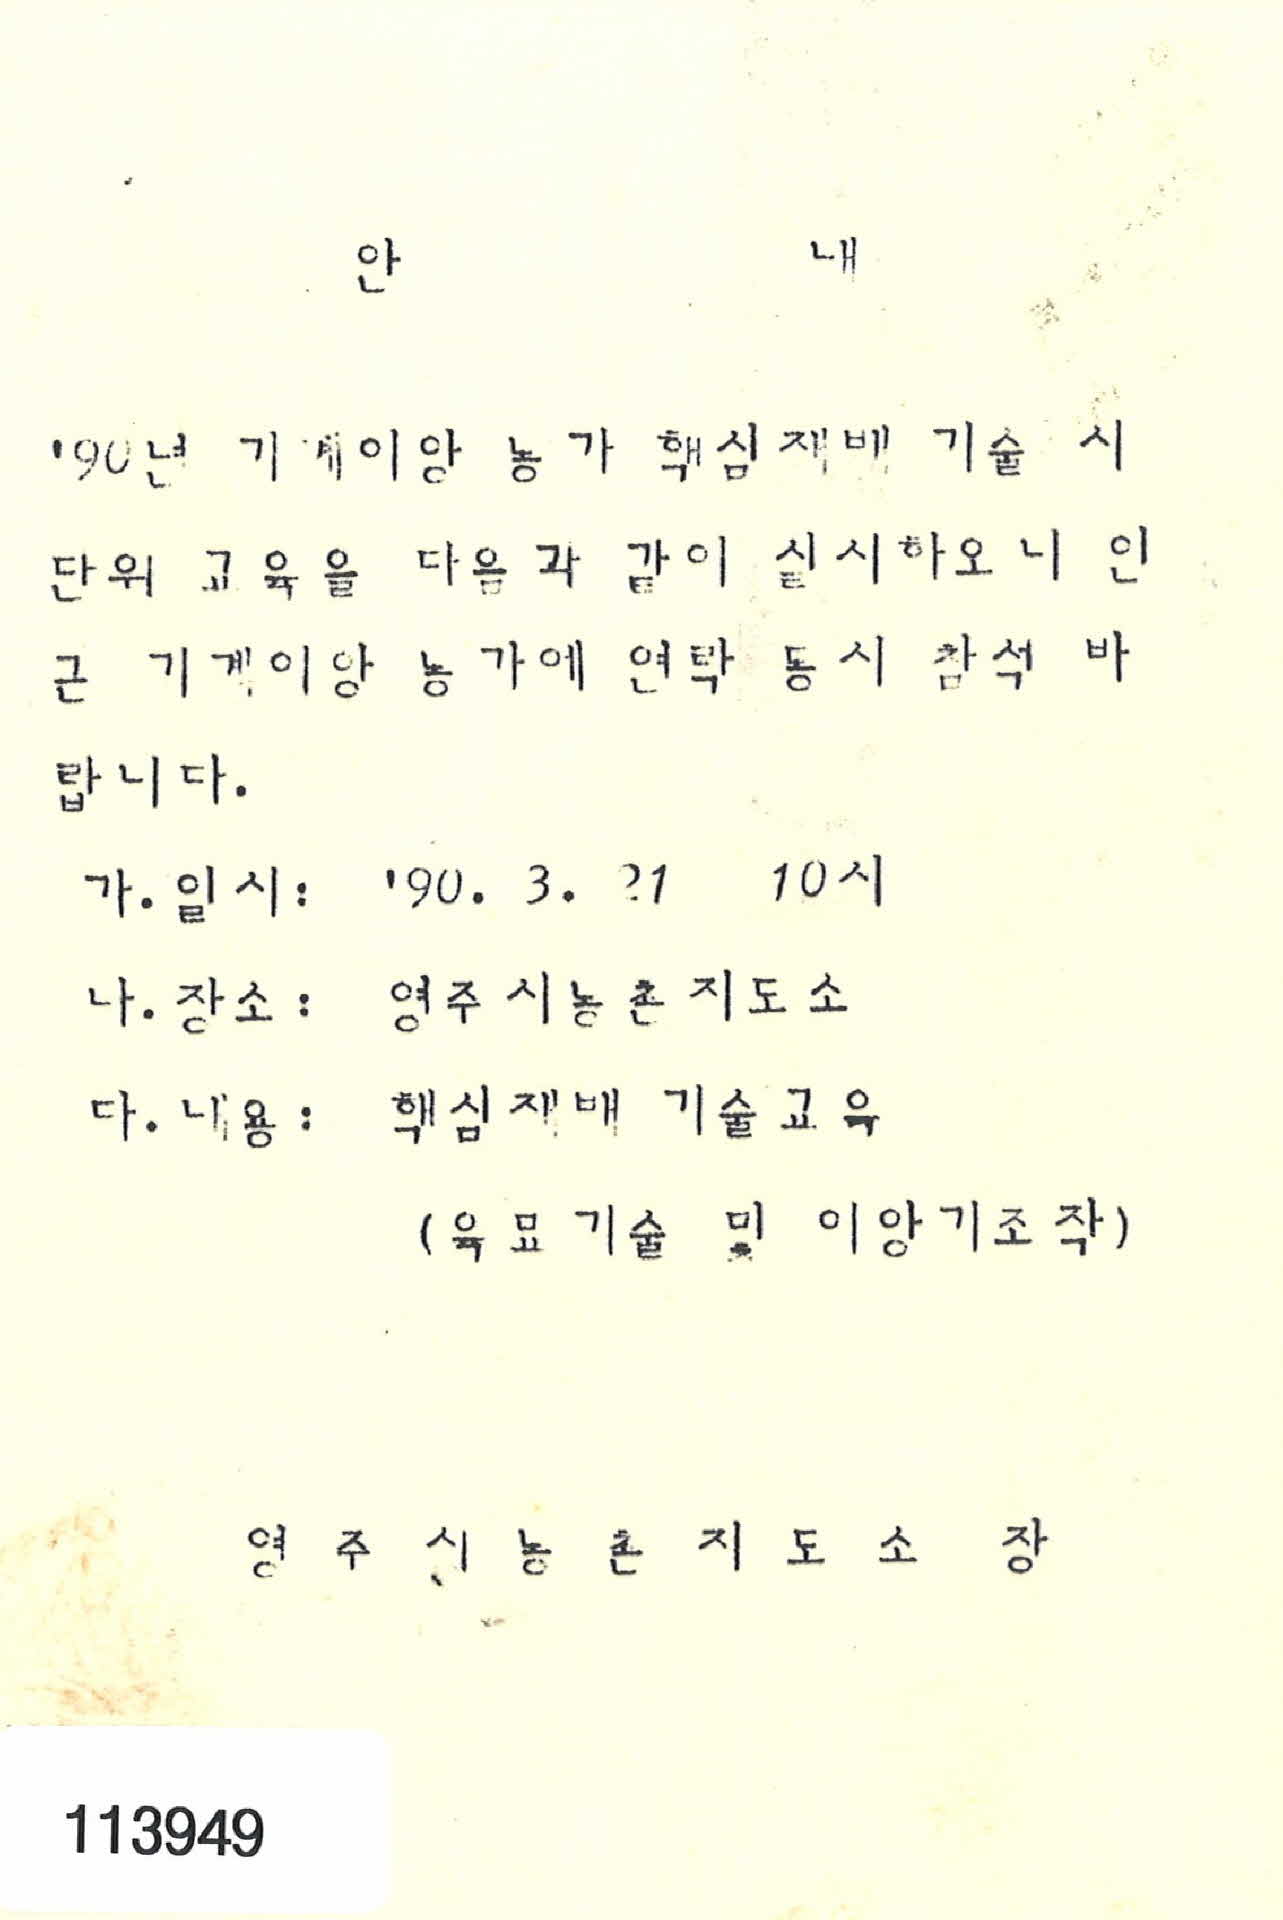 안 내
'90년 기계이앙 농가 핵심재배 기술 시
단위 교육을 다음과 같이 실시하오니 인
근 기계이앙 농가에 연락 동시 참석 바
랍니다.
가.일시: '90. 3. 21 10시
나.장소: 영주시농촌지도소
다.내용: 핵심재배 기술교육
(육묘기술 및 이앙기조작)
영주시농촌지도소장
113949